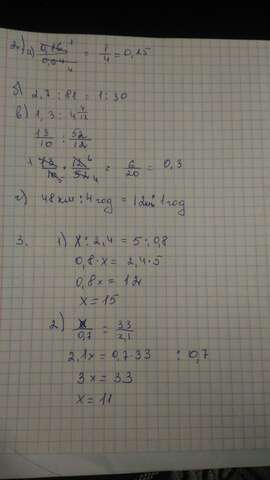 2) a) 0,16 1 / 0,64 4 = 1/4 = 0,25
б) 2,7 : 81 = 1 : 30
в) 1,3 : 4 4/12
13/10 : 52/12
1 13/10 5 · 12 6/52 4 = 6/20 = 0,3
г) 48 км : 4 год = 12 : 1 год
3. 1) x : 2,4 = 5 : 0,8
0,8 · x = 2,4 · 5
0,8x = 12
x = 15
2) x/0,7 = 33/2,1
2,1x = 0,7 · 33 : 0,7
3x = 33
x = 11